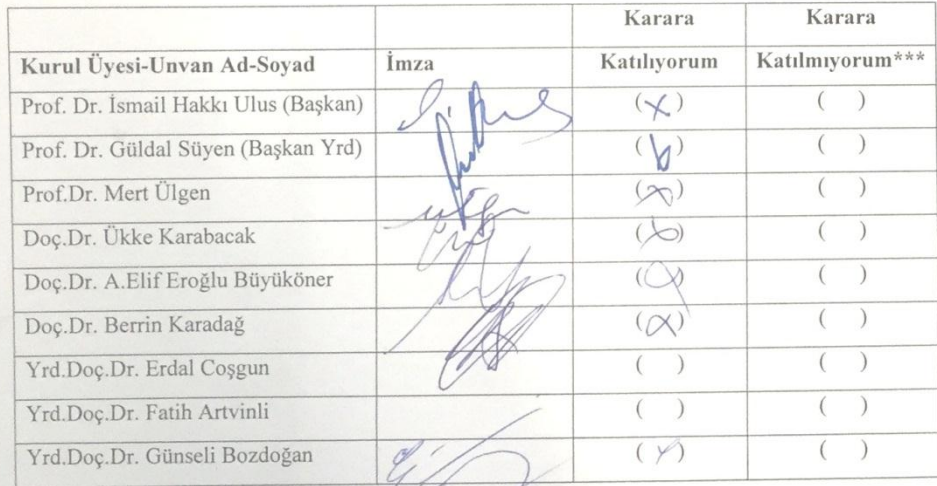 Karara Karara
Kurul Üyesi-Unvan Ad-Soyad İmza Katılıyorum Katılmıyorum***
Prof. Dr. İsmail Hakkı Ulus (Başkan) (x) ( )
Prof. Dr. Güldal Süyen (Başkan Yrd) (x) ( )
Prof.Dr. Mert Ülgen (x) ( )
Doç.Dr. Ükke Karabacak (x) ( )
Doç.Dr. A.Elif Eroğlu Büyüköner (x) ( )
Doç.Dr. Berrin Karadağ (x) ( )
Yrd.Doç.Dr. Erdal Coşgun ( ) ( )
Yrd.Doç.Dr. Fatih Artvinli ( ) ( )
Yrd.Doç.Dr. Günseli Bozdoğan (x) ( )